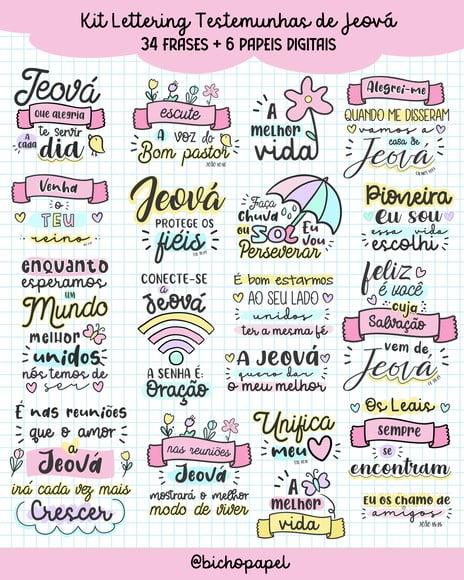 Kit Lettering Testemunhas de Jeová
34 FRASES + 6 PAPEIS DIGITAIS
Jeová
que alegria
a cada
te servir
dia
escute
A voz do
Bom pastor
A
melhor
vida
Alegrei-me
QUANDO ME DISSERAM
vamos a
casa de
Jeová
Venha
o
TEU
reino
Jeová
PROTEGE OS
fiéis
Faça
chuva
ou
SOL
Eu
vou
Perseverar
Pioneira
eu sou
essa vida
escolhi
enquanto
esperamos
um
Mundo
melhor
unidos
nós temos de
ser
CONECTE-SE
a
Jeová
A SENHA É:
Oração
É bom estarmos
AO SEU LADO
unidos
ter a mesma fé
A JEOVÁ
quero dar
o meu melhor
feliz
é você
cuja
Salvação
vem de
Jeová
É nas reuniões
que o amor
a
JEOVÁ
irá cada vez mais
Crescer
nas reuniões
Jeová
mostrará o melhor
modo de viver
Unifica
meu
A
melhor
vida
Os Leais
sempre
se
encontram
EU OS CHAMO DE
amigos
JOÃO 15:15
@bichopapel